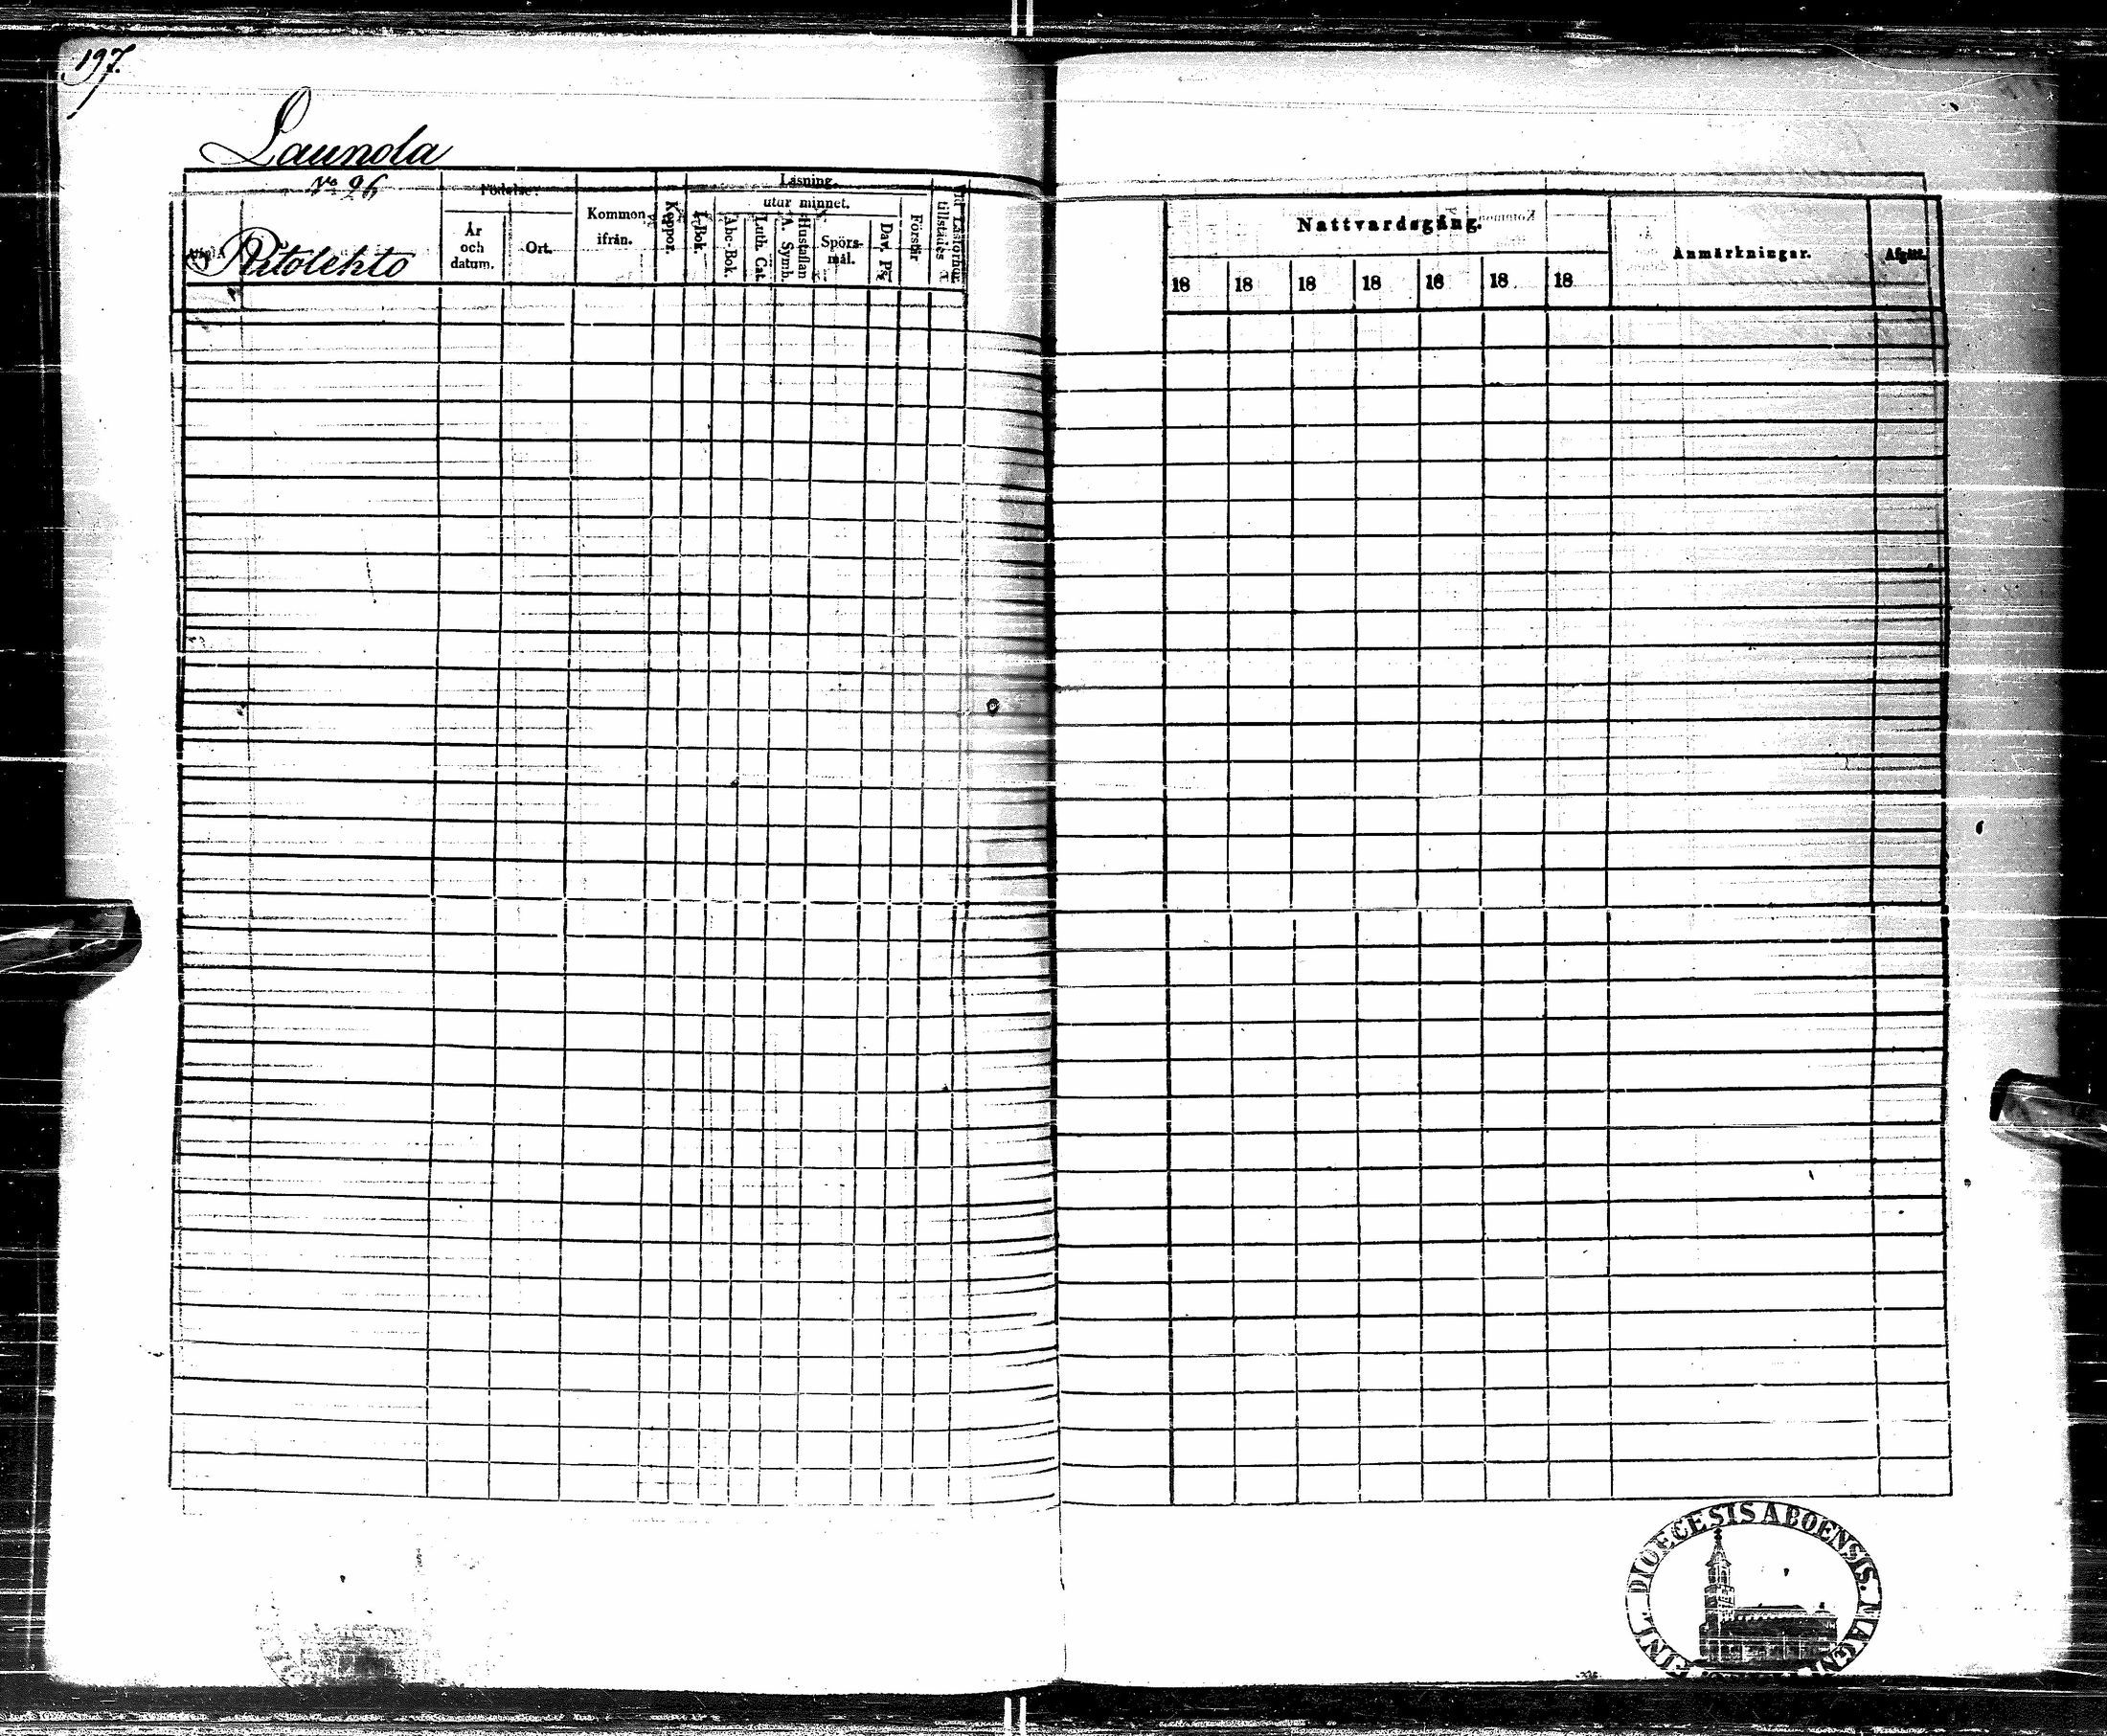 197.
Launola
No 26
Ritolehto
Födelse-
År
och
datum.
Ort.
Kommon
ifrån.
Koppor.
Läsning.
utur minnet.
I Bok.
Abc-Bok.
Luth. Cat.
A. Symb.
Hustaflan
Spörs-
mål.
Dav. Ps.
Förstår
Vid Läsförhör
tillstädes
Nattvardsgång.
18 18 18 18 18 18 18
Anmärkningar.
Afgått.
DIOECESIS ABOENSIS. MAGNI
FINL.